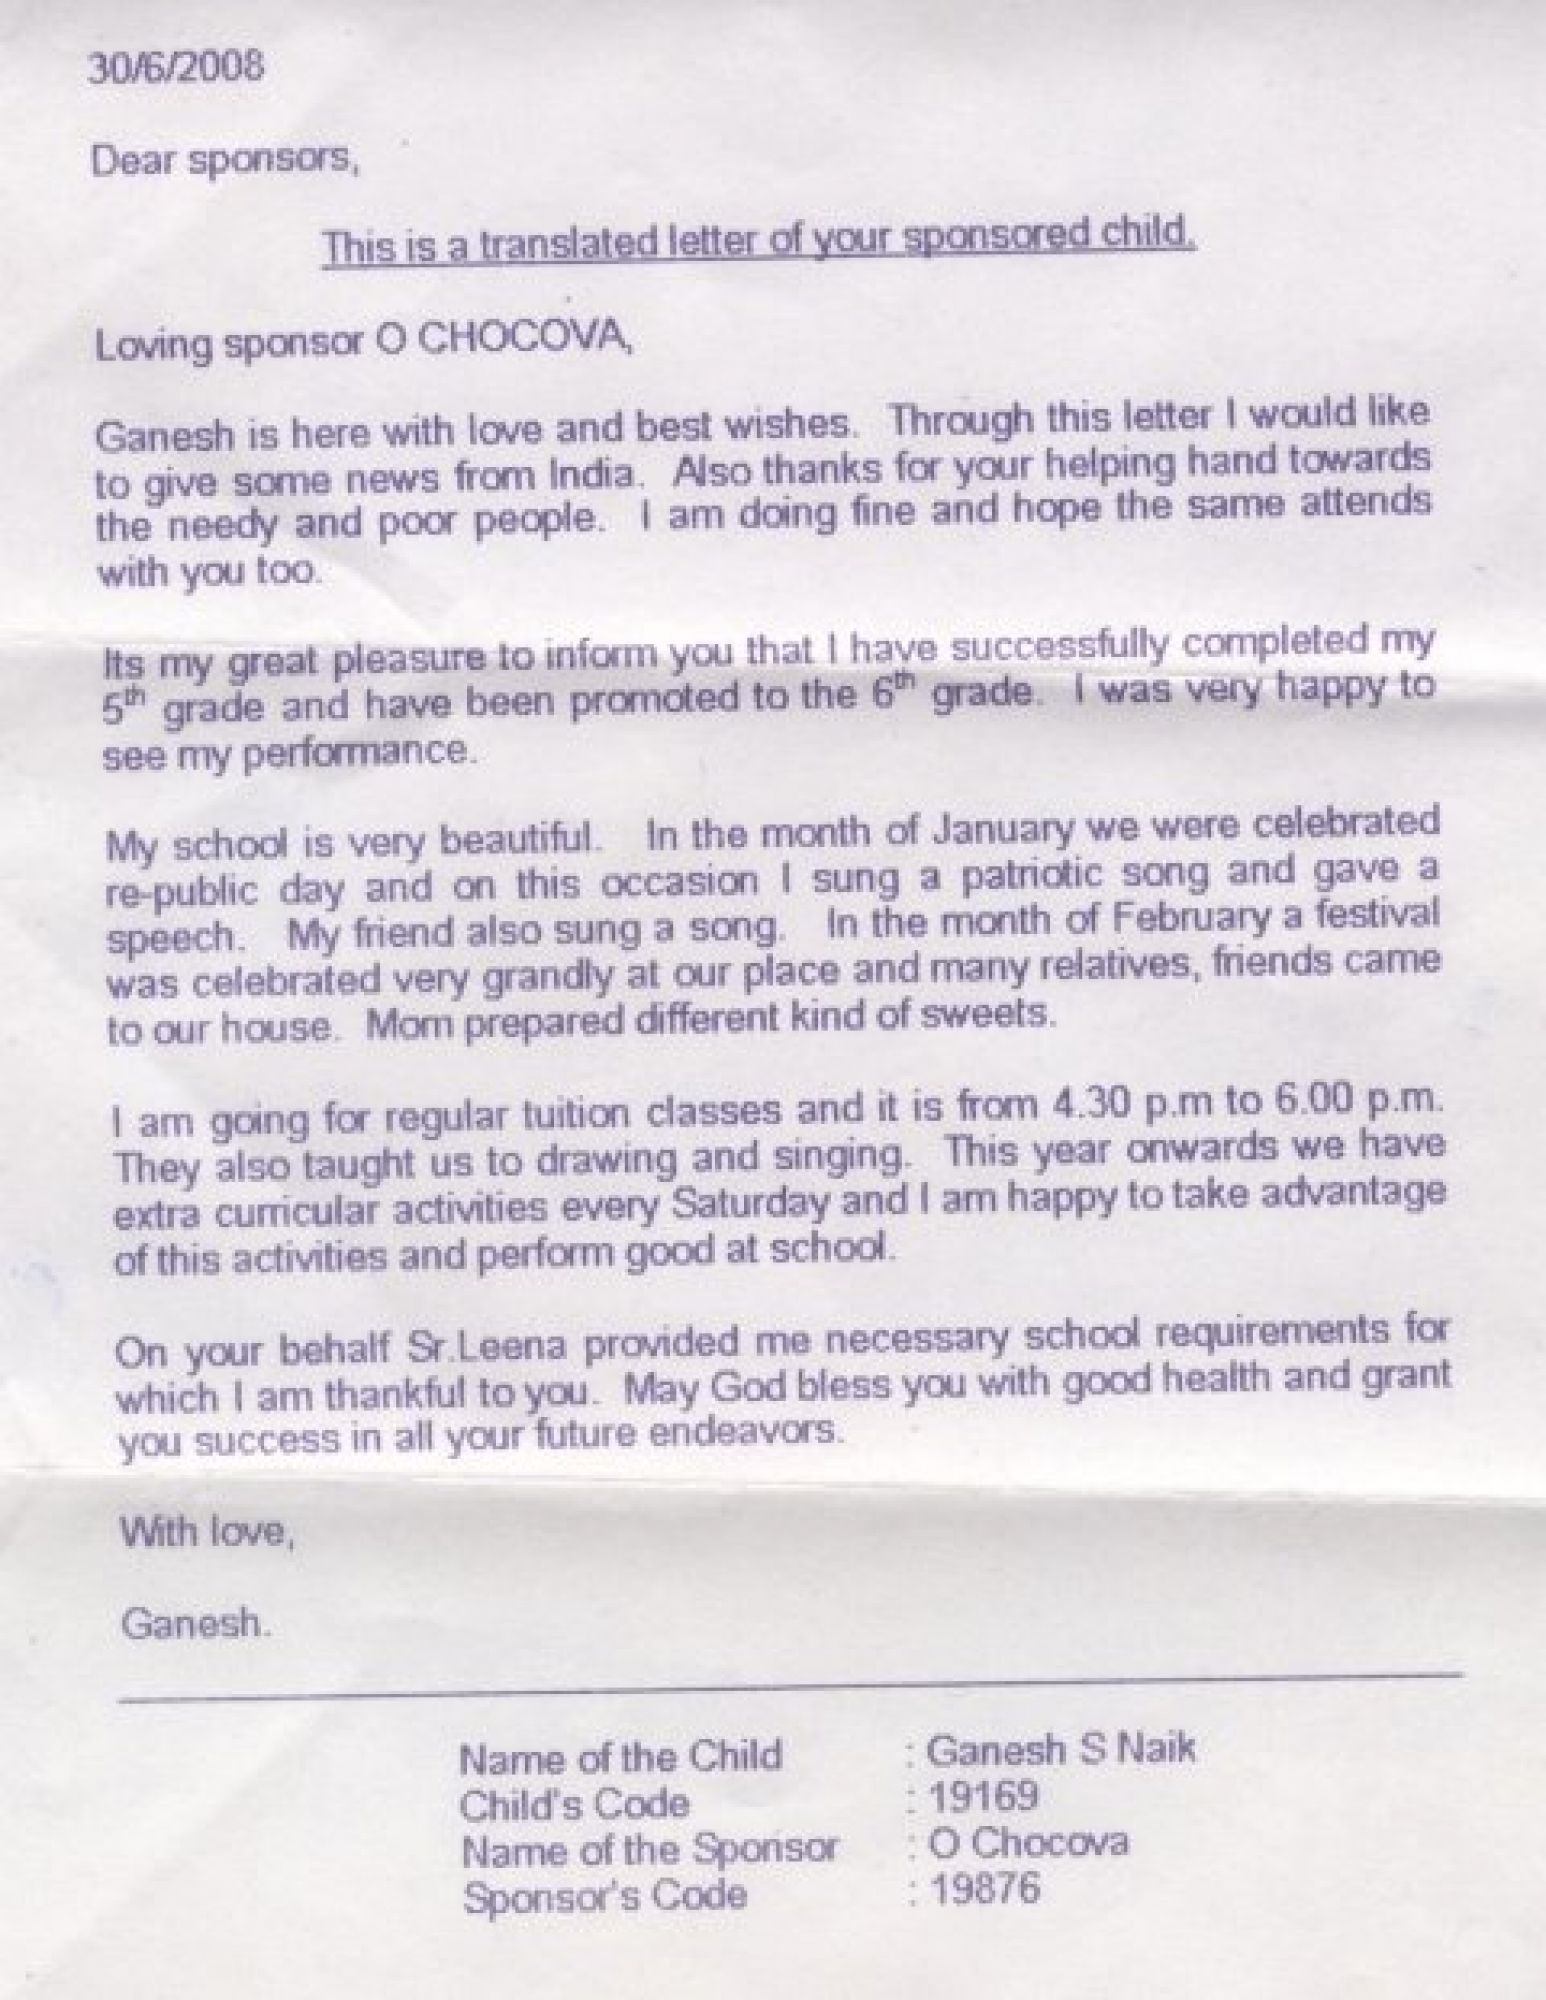 30/6/2008
Dear sponsors,
This is a translated letter of your sponsored child.
Loving sponsor O CHOCOVA,
Ganesh is here with love and best wishes. Through this letter I would like
to give some news from India. Also thanks for your helping hand towards
the needy and poor people. I am doing fine and hope the same attends
with you too.
Its my great pleasure to inform you that I have successfully completed my
5th grade and have been promoted to the 6th grade. I was very happy to
see my performance.
My school is very beautiful. In the month of January we were celebrated
re-public day and on this occasion I sung a patriotic song and gave a
speech. My friend also sung a song. In the month of February a festival
was celebrated very grandly at our place and many relatives, friends came
to our house. Mom prepared different kind of sweets.
I am going for regular tuition classes and it is from 4.30 p.m to 6.00 p.m.
They also taught us to drawing and singing. This year onwards we have
extra curricular activities every Saturday and I am happy to take advantage
of this activities and perform good at school.
On your behalf Sr.Leena provided me necessary school requirements for
which I am thankful to you. May God bless you with good health and grant
you success in all your future endeavors.
With love,
Ganesh.
Name of the Child : Ganesh S Naik
Child's Code : 19169
Name of the Sponsor : O Chocova
Sponsor's Code : 19876